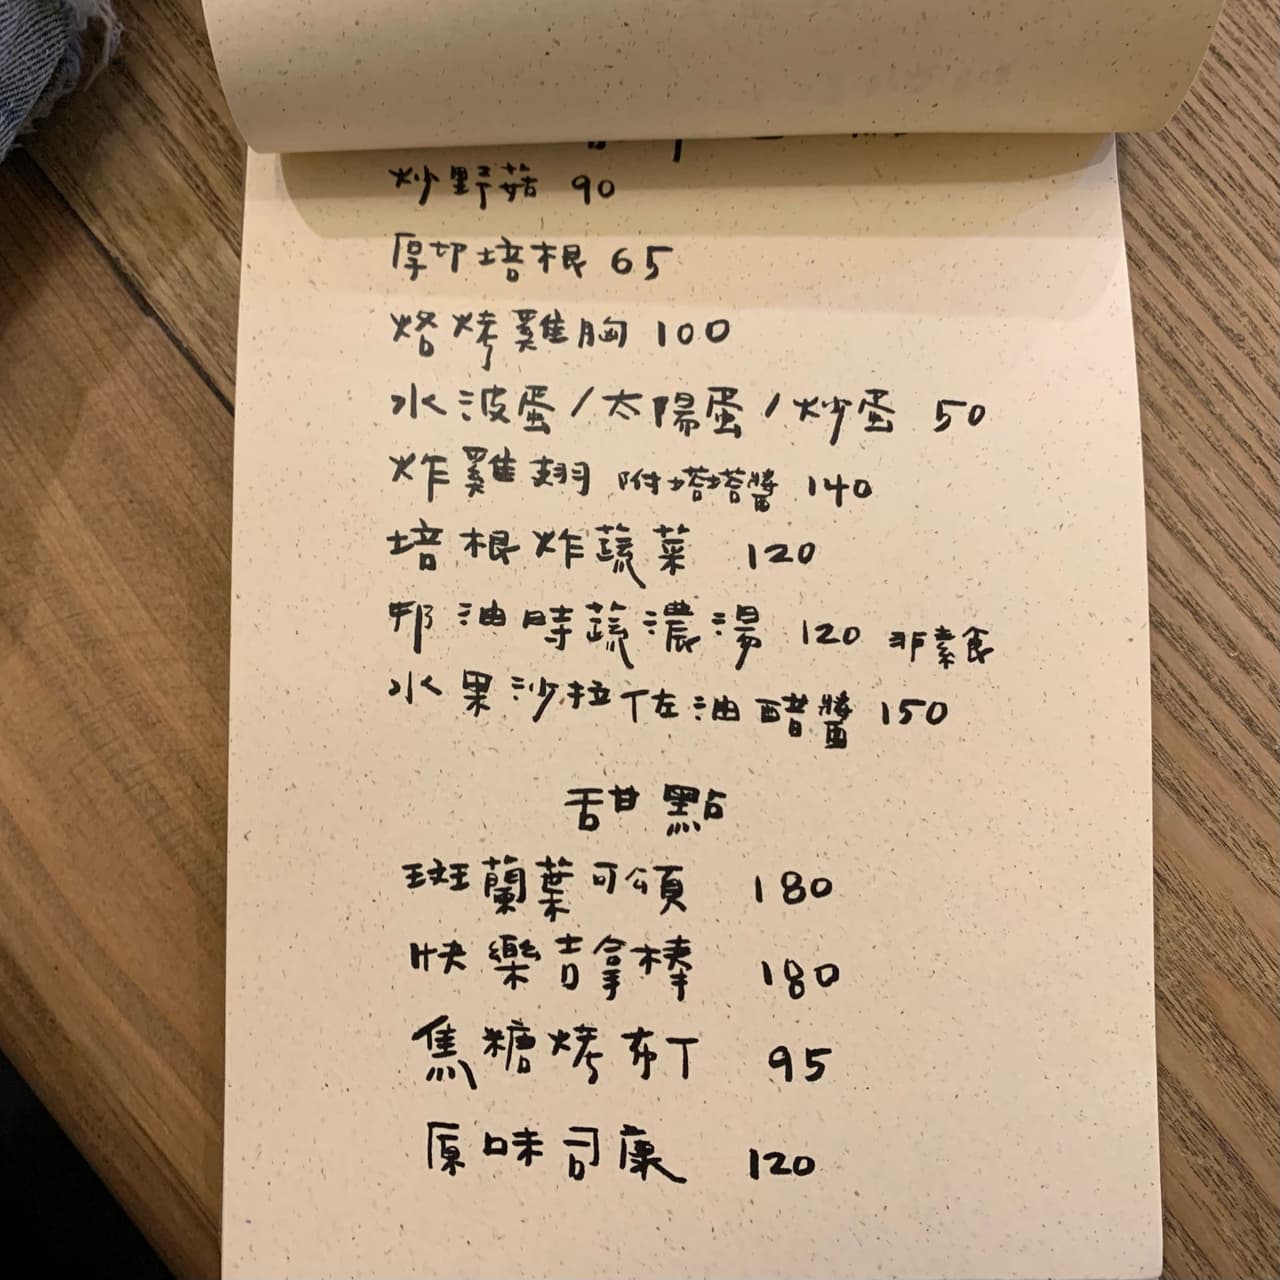 炒野菇 90
厚切培根 65
烙烤雞胸 100
水波蛋/太陽蛋/炒蛋 50
炸雞翅 附塔塔醬 140
培根炸蔬菜 120
奶油時蔬濃湯 120 非素食
水果沙拉佐油醋醬 150
甜點
斑蘭葉可頌 180
快樂吉拿棒 180
焦糖烤布丁 95
原味司康 120